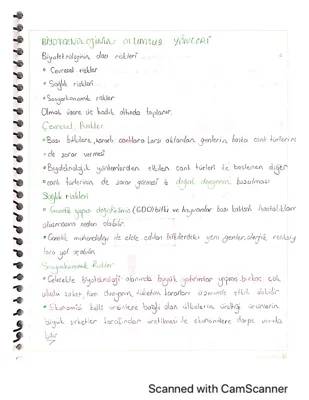 BİYOTEKNOLOJİNİN OLUMSUZ YÖNLERİ
Biyoteknolojinin olası riskleri
• Çevresel riskler
• Sağlık riskleri
• Sosyoekonomik riskler
Olmak üzere üç başlık altında toplanır.
Çevresel Riskler
• Bazı bitkilere, zararlı canlılara karşı aktarılan genlerin başka canlı türlerine
de zarar vermesi
• Biyoteknolojik yöntemlerden etkilen canlı türleri ile beslenen diğer
• canlı türlerinin de zarar görmesi doğal dengenin bozulması
Sağlık riskleri
• Genetik yapısı değiştirilmiş (GDO) bitki ve hayvanlar bazı kalıtsal hastalıkların
oluşmasına neden olabilir.
• Genetik mühendisliği ile elde edilen bitkilerdeki yeni genler, alerjik
yol açabilir
Sosyoekonomik Riskler
• Gelecekte Biyoteknoloji alanında büyük yatırımlar yapmış birkaç çok
uluslu şirket tüm dünyanın tüketim kararları üzerinde etkili olabilir.
• Ekonomisi belli ürünlere bağlı olan ülkelerin ürettiği ürünlerin
büyük şirketler tarafından üretilmesi ile ekonomilere darbe